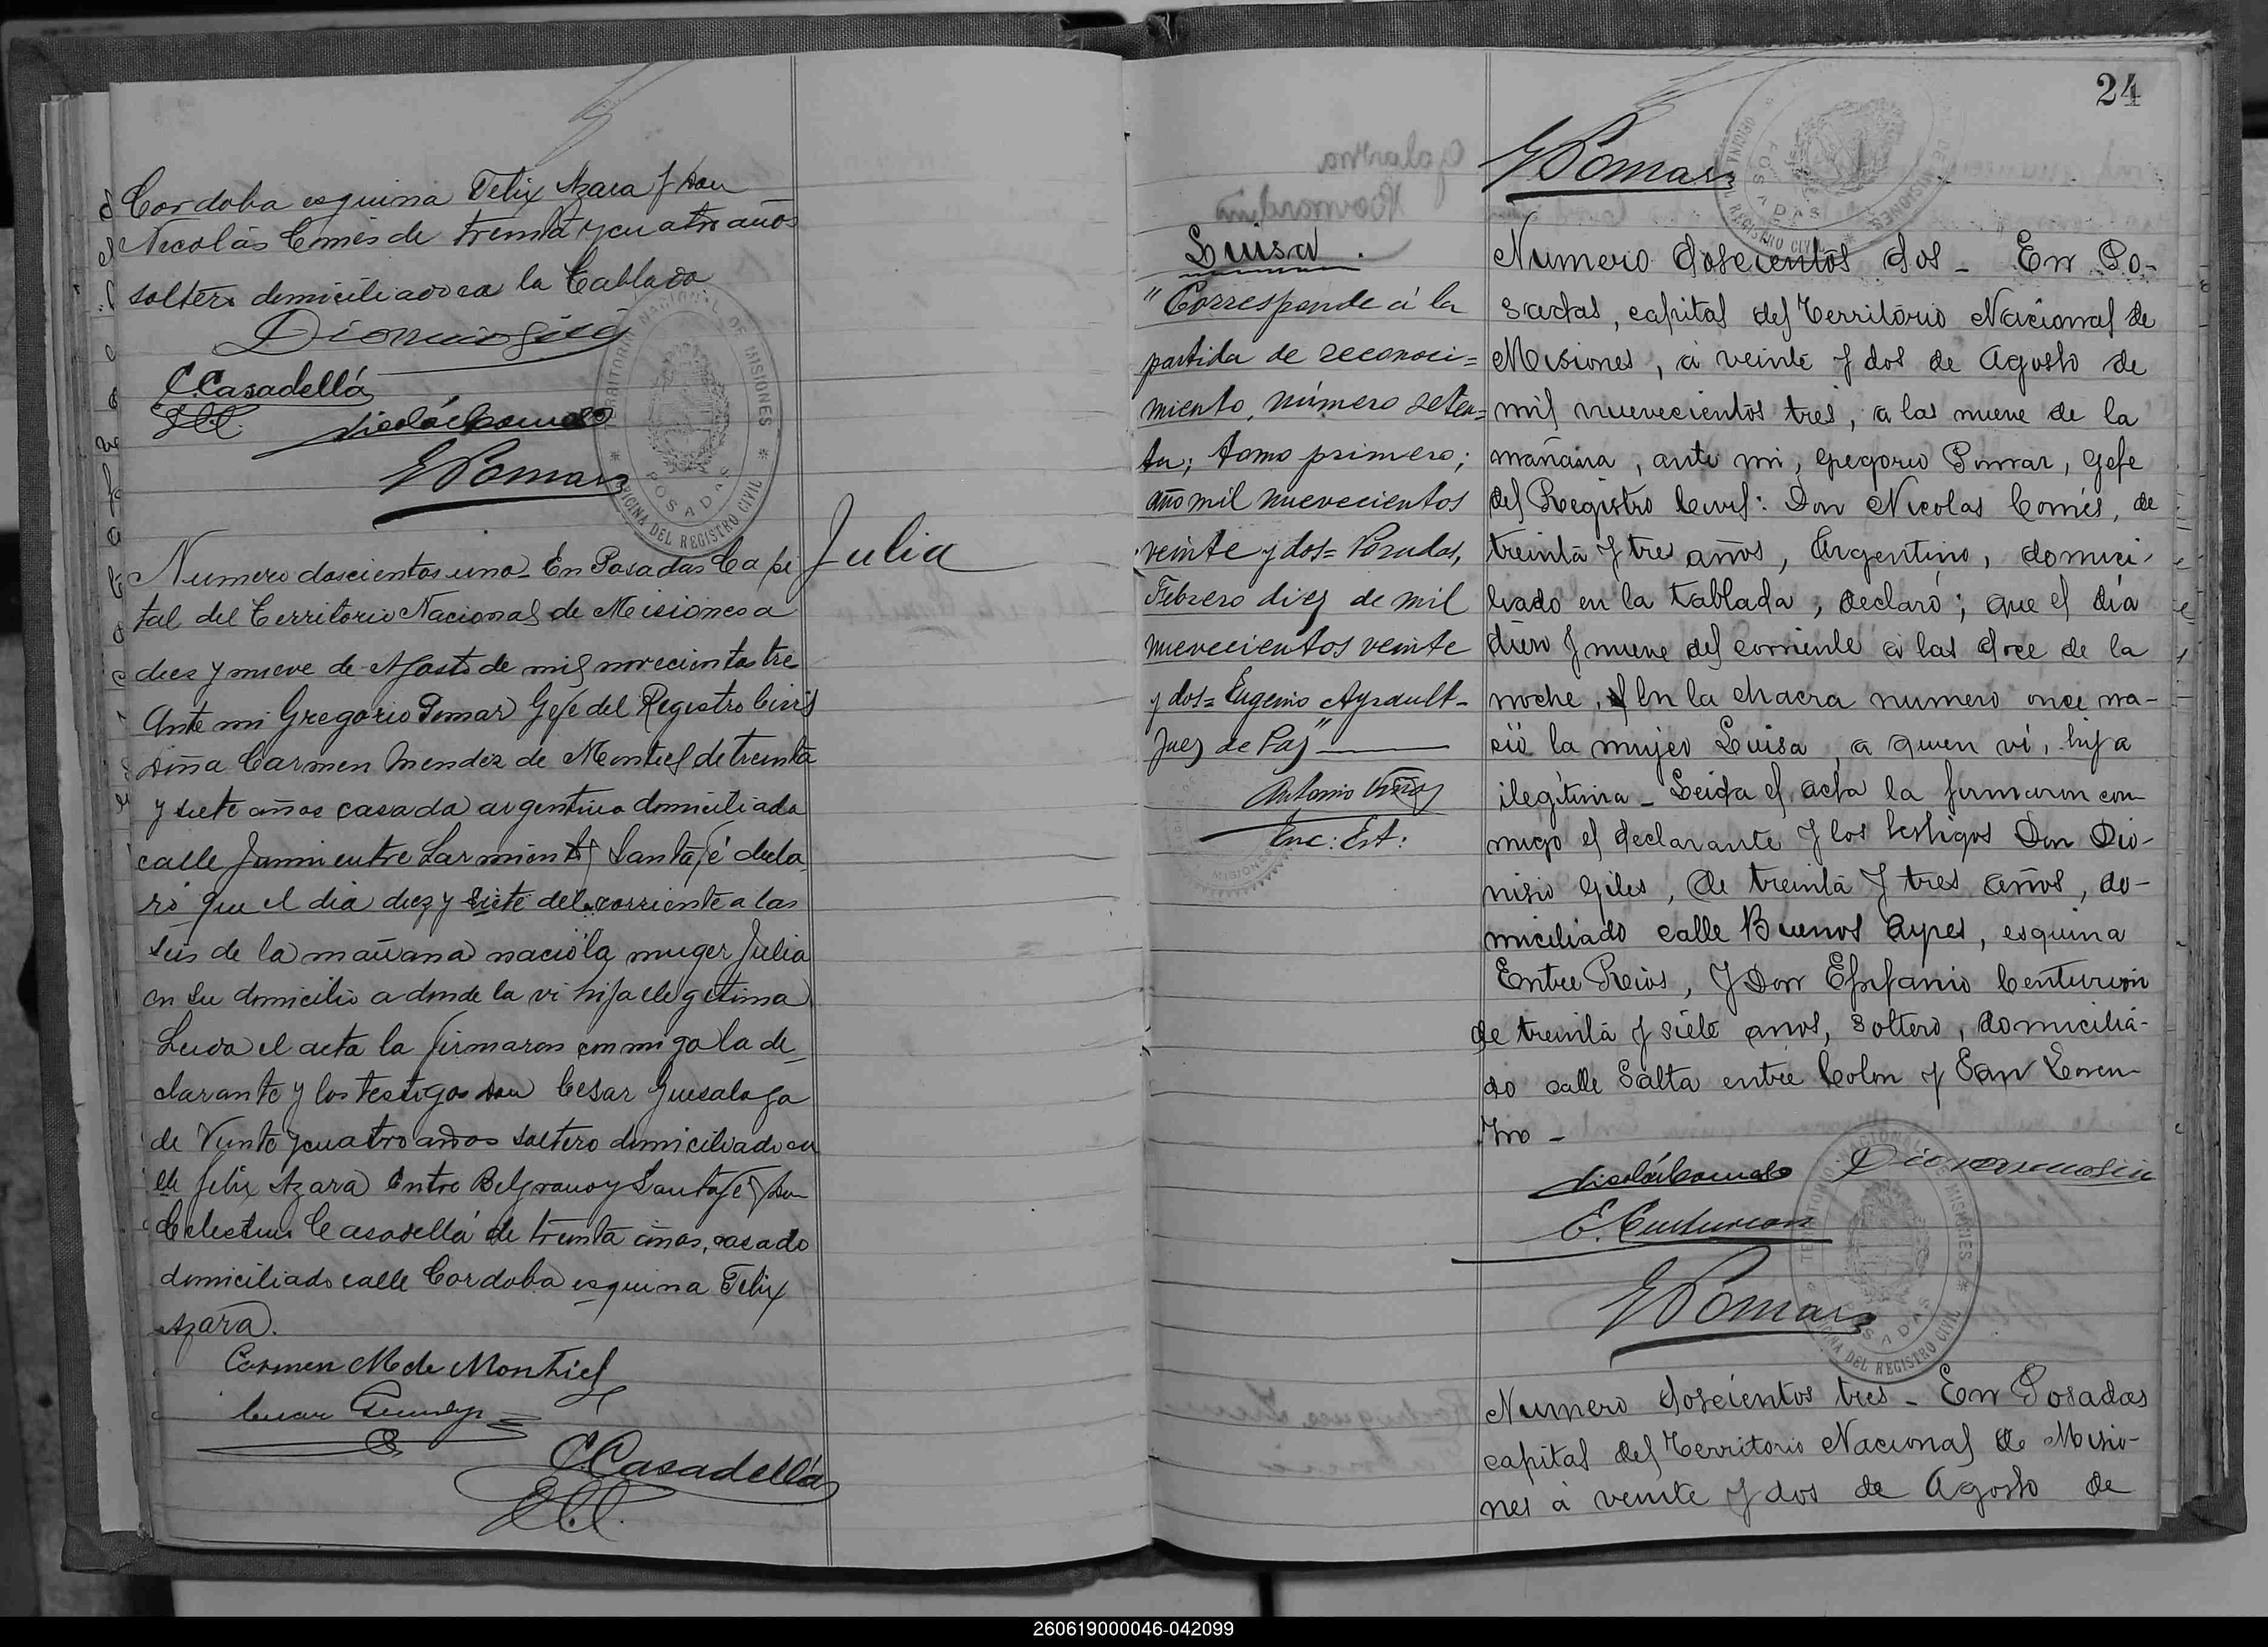 Cordoba esquina Felix Azara y Don
Nicolás Comés de treinta y cuatro años
soltero domiciliado en la Tablada
C. Casadellá
G Pomar
TERRITORIO NACIONAL DE MISIONES
POSADAS
OFICINA DEL REGISTRO CIVIL
Julia
Numero doscientos uno_ En Posadas Capi
tal del Territorio Nacional de Misiones a
diez y nueve de Agosto de mil novecientos tre
Ante mi Gregorio Pomar Gefe del Registro Civil
Doña Carmen Mendez de Montiel de treinta
y siete años casada argentina domiciliada
calle Junin entre Sarmiento y Santa fé decla
ró que el dia diez y siete del corriente a las
seis de la mañana nació la muger Julia
en su domicilio a donde la vi hija ilegitima
Leida el acta la firmaron conmigo la de_
clarante y los testigos Don Cesar
de Veinte y cuatro años soltero domiciliado en
Felix Azara Entre Belgrano y Santa fé y Don
Celestino Casadellá de treinta años, casado
domiciliado calle Cordoba esquina Felix
Azara.
Carmen M de Montiel
C. Casadellá
24
G Pomar
OFICINA DEL REGISTRO CIVIL
POSADAS
Luisa.
"Corresponde á la
partida de reconoci=
miento, número seten=
ta; tomo primero;
año mil nuevecientos
veinte y dos= Posadas,
Febrero diez de mil
nuevecientos veinte
y dos= Eugenio Ayrault-
Juez de Paz"
Antonio
Enc: Est:
Numero doscientos dos - En Po-
sadas, capital del Territorio Nacional de
Misiones, á veinte y dos de Agosto de
mil nuevecientos tres, a las nueve de la
mañana, ante mi, Gregorio Pomar, Gefe
del Registro Civil: Don Nicolas Comés, de
treinta y tres años, Argentino, domici-
liado en la tablada, declaró; que el dia
diez y nueve del corriente á las doce de la
noche, en la chacra numero once na-
ció la mujer Luisa, a quien ví, hija
ilegítima - Leida el acta la firmaron con
migo el declarante y los testigos Don Dio-
nisio Giles, de treinta y tres años, do-
miciliado calle Buenos Ayres, esquina
Entre Rios, y Don Epifanio Centurion
de treinta y siete anos, soltero, domicilia-
do calle Salta entre Colon y San Loren-
zo -
E. Centurion
G Pomar
TERRITORIO NACIONAL DE MISIONES
POSADAS
OFICINA DEL REGISTRO CIVIL
Numero doscientos tres - En Posadas
capital del Territorio Nacional de Misio-
nes á veinte y dos de Agosto de
260619000046-042099